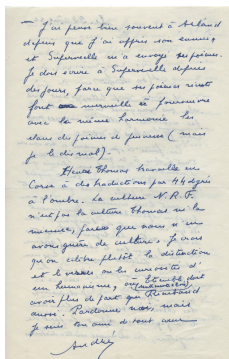 — J'ai pensé bien souvent à Arland
depuis que j'ai appris son ennui,
et Supervielle m'a envoyé ses poèmes.
Je dois écrire à Supervielle depuis
des jours, parce que ses poèmes récents
font merveille et poursuivre
avec la même harmonie les
élans des poèmes de jeunesse (mais
je le dis mal).
Henri Thomas travaille en
Corse à des traductions par 44 degrés
à l'ombre. La culture N.R.F.
n'est pas la culture Thomas ni la
mienne, parce que nous n'en
avons guère de culture. Je crois
qu'on célèbre plutôt la distinction
et le ou les curiosités d'
un humanisme, où Etiemble doit
avoir plus de part que Rimbaud
aussi. Pardonne-nous, mais
je suis ton ami de tout cœur
André